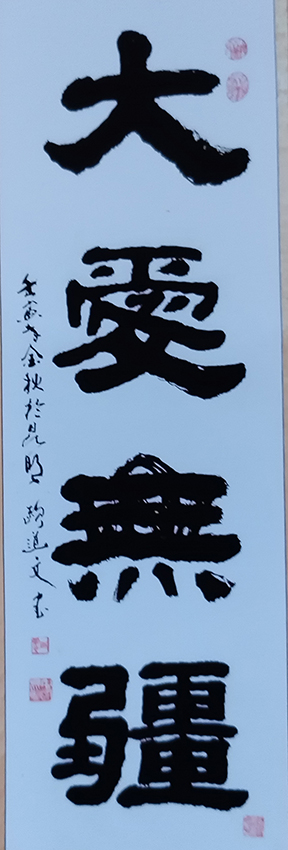 大愛無疆
壬寅年金秋於昆明 道文書